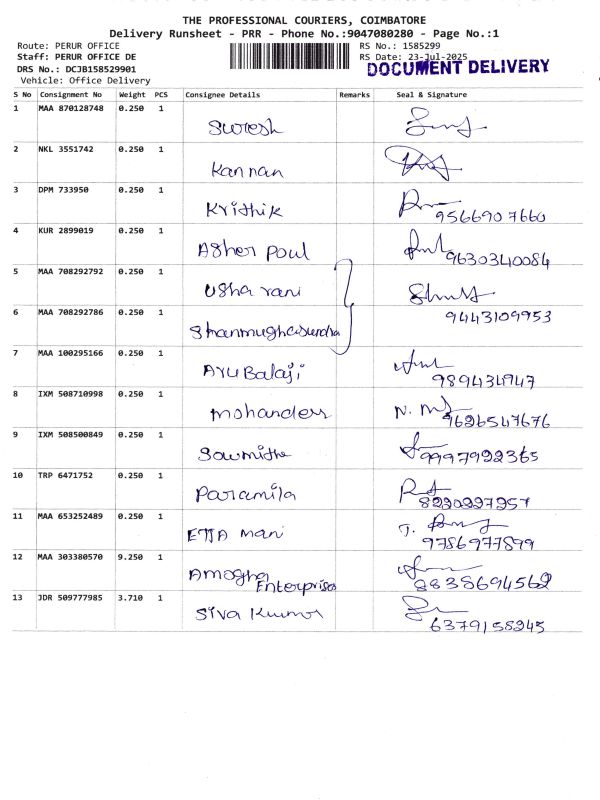 THE PROFESSIONAL COURIERS, COIMBATORE
Delivery Runsheet - PRR - Phone No.:9047080280 - Page No.:1
Route: PERUR OFFICE RS No.: 1585299
Staff: PERUR OFFICE DE RS Date: 23-Jul-2025
DRS No.: DCJB158529901 DOCUMENT DELIVERY
Vehicle: Office Delivery
S No Consignment No Weight PCS Consignee Details Remarks Seal & Signature
1 MAA 870128748 0.250 1 Suresh
2 NKL 3551742 0.250 1 Kannan
3 DPM 733950 0.250 1 Krithik 9566907660
4 KUR 2899019 0.250 1 Asher Poul 9630340084
5 MAA 708292792 0.250 1 Usha rani
6 MAA 708292786 0.250 1 9443109953
7 MAA 100295166 0.250 1 Aru Balaji 989434947
8 IXM 508710998 0.250 1 9626547676
9 IXM 508500849 0.250 1 9997922365
10 TRP 6471752 0.250 1 Paramila
11 MAA 653252489 0.250 1 mani 9786977899
12 MAA 303380570 9.250 1 Amogha Enterprises 8838694562
13 JDR 509777985 3.710 1 Siva Kumar 6379158345